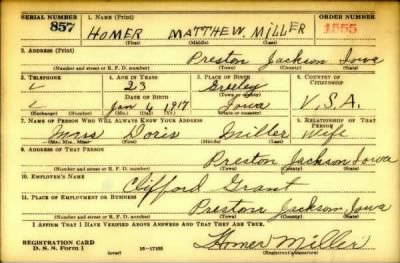 SERIAL NUMBER 1. NAME (Print) ORDER NUMBER
857 HOMER MATTHEW. MILLER 1555
(First) (Middle) (Last)
2. ADDRESS (Print)
Preston Jackson Iowa
(Number and street or R. F. D. number) (Town) (County) (State)
3. TELEPHONE 4. AGE IN YEARS 5. PLACE OF BIRTH 6. COUNTRY OF CITIZENSHIP
23 Greeley
DATE OF BIRTH (Town or county)
Jan 6 1917 Iowa U.S.A.
(Exchange) (Number) (Mo.) (Day) (Yr.) (State or country)
7. NAME OF PERSON WHO WILL ALWAYS KNOW YOUR ADDRESS 8. RELATIONSHIP OF THAT PERSON
Mrs Doris Miller Wife
(Mr., Mrs., Miss) (First) (Middle) (Last)
9. ADDRESS OF THAT PERSON
Preston Jackson Iowa
(Number and street or R. F. D. number) (Town) (County) (State)
10. EMPLOYER'S NAME
Clifford Grant
11. PLACE OF EMPLOYMENT OR BUSINESS
Preston Jackson, Iowa
(Number and street or R. F. D. number) (Town) (County) (State)
I AFFIRM THAT I HAVE VERIFIED ABOVE ANSWERS AND THAT THEY ARE TRUE.
REGISTRATION CARD
D. S. S. Form 1 (over) 16-17105 Homer Miller
(Registrant's signature)